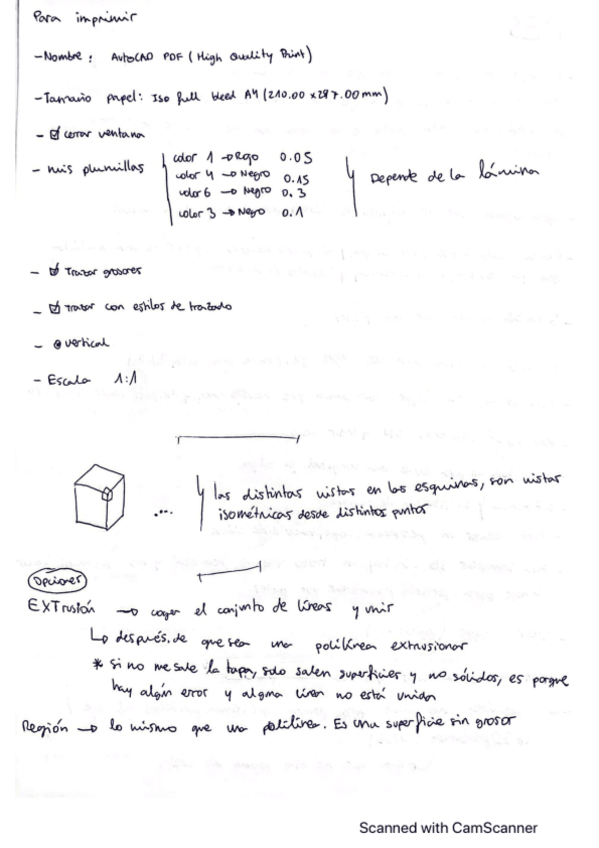 Para imprimir
- Nombre: AutoCAD PDF (High Quality Print)
- Tamaño papel: Iso full bleed A4 (210.00 x 297.00 mm)
- ☑ cerrar ventana
- mis plumillas
color 1 → Rojo 0.05
color 4 → Negro 0.15
color 6 → Negro 0.3
color 3 → Negro 0.1
Depende de la lámina
- ☑ Trazar grosores
- ☑ Trazar con estilos de trazado
- vertical
- Escala 1:1
... las distintas vistas en las esquinas, son vistas
isométricas desde distintos puntos
Opciones
EXTrusión → coger el conjunto de líneas y unir
↳ después, de que sea una polilínea extrusionar
* si no me sale la tapa, solo salen superficies y no sólidos, es porque
hay algún error y alguna línea no está unida
Región → lo mismo que una polilínea. Es una superficie sin grosor
Scanned with CamScanner